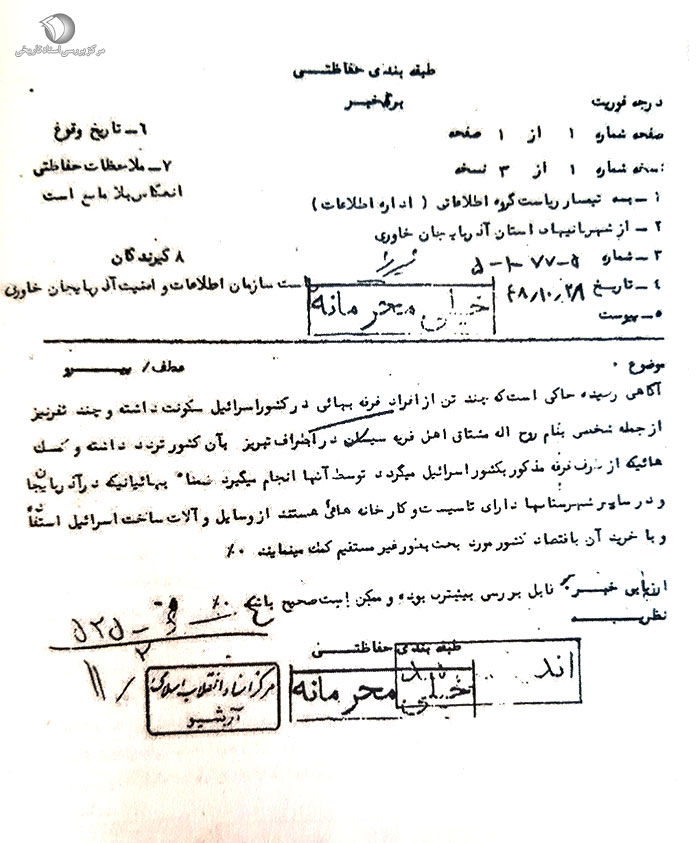 مرکز بررسی اسناد تاریخی
طبقه بندی حفاظتی
درجه فوریت
برگ خبر
صفحه شماره ۱ از ۱ صفحه
۶ـ تاریخ وقوع
نسخه شماره ۱ از ۳ نسخه
۷ـ ملاحظات حفاظتی
انعکاس بلا مانع است
۱ ـ به تیمسار ریاست گروه اطلاعاتی ( اداره اطلاعات )
۲ ـ از شهربانیهای استان آذربایجان خاوری
۳ ـ شماره
۸ گیرندگان
۴ ـ تاریخ ۴۸/۱۰/۲۹
ست سازمان اطلاعات و امنیت آذربایجان خاوری
خیلی محرمانه
۵ـ پیوست
موضوع
عطف / پیرو
آگاهی رسیده حاکی است که چند تن از افراد فرقه بهائی در کشور اسرائیل سکونت داشته و چند نفر نیز
از جمله شخصی بنام روح اله مشتاق اهل قریه سیسان در اطراف تبریز بآن کشور تردد داشته و کمک
هائیکه از طرف فرقه مذکور بکشور اسرائیل میگردد توسط آنها انجام میگیرد ضمنا" بهائیانیکه در آذربایجان
و در سایر شهرستانها دارای تاسیسات و کارخانه هائی هستند از وسایل و آلات ساخت اسرائیل استفاده
و با خرید آن باقتصاد کشور مورد بحث بطور غیر مستقیم کمک مینمایند ۰٪
ارزیابی خبر: قابل بررسی بیشتر بوده و ممکن است صحیح باشد ۰٪
نظریه
طبقه بندی حفاظتی
خیلی محرمانه
مرکز اسناد انقلاب اسلامی
آرشیو